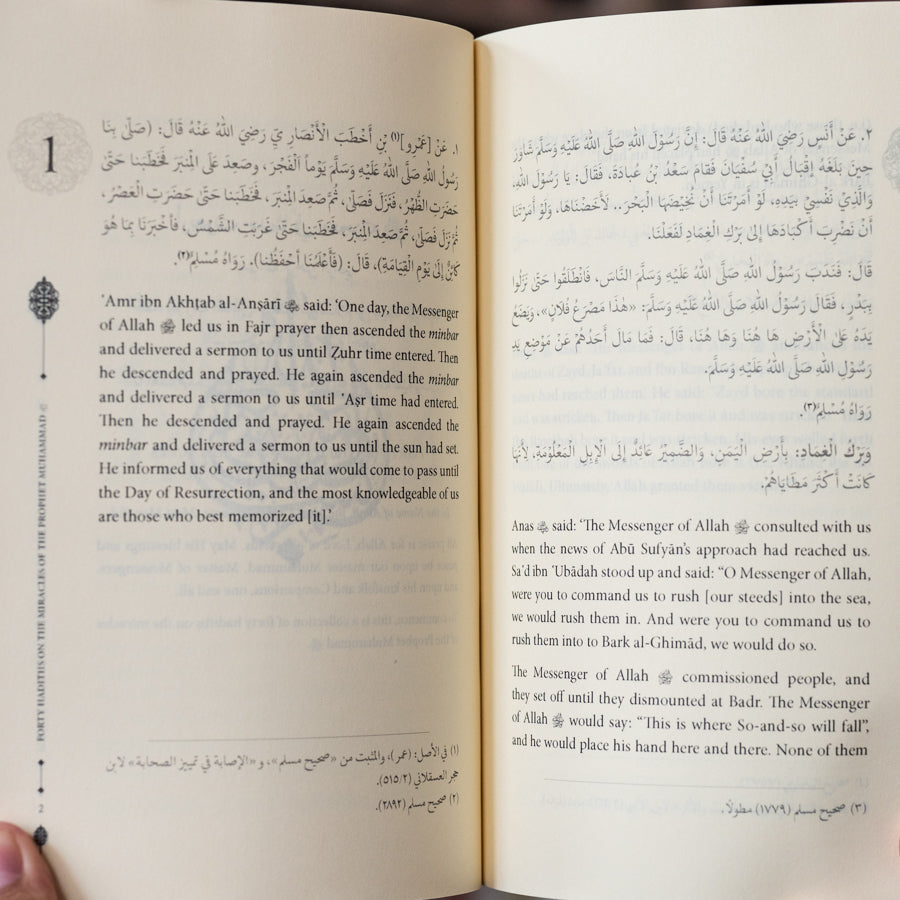 1
١. عَنْ [عَمْرِو](١) بْنِ أَخْطَبَ الْأَنْصَارِ يِّ رَضِيَ اللهُ عَنْهُ قَالَ: (صَلَّىٰ بِنَا
رَسُولُ اللهِ صَلَّى اللهُ عَلَيْهِ وَسَلَّمَ يَوْماً الْفَجْرَ، وصَعِدَ عَلَى الْمِنْبَرِ فَخَطَبَنا حَتَّىٰ
حَضَرَتِ الظُّهْرُ، فَنَزَلَ فَصَلَّىٰ، ثُمَّ صَعِدَ الْمِنْبَرَ، فَخَطَبَنا حَتَّىٰ حَضَرَتِ الْعَصْرُ،
ثُمَّ نَزَلَ فَصَلَّىٰ، ثُمَّ صَعِدَ الْمِنْبَرَ، فَخَطَبَنا حَتَّىٰ غَرَبَتِ الشَّمْسُ، فَأَخْبَرَنَا بِمَا هُوَ
كَائِنٌ إِلَىٰ يَوْمِ الْقِيَامَةِ)، قَالَ: (فَأَعْلَمُنا أَحْفَظُنا). رَوَاهُ مُسْلِمٌ(٢).
'Amr ibn Akhtab al-Anṣārī ﷺ said: 'One day, the Messenger
of Allah ﷺ led us in Fajr prayer then ascended the minbar
and delivered a sermon to us until Ẓuhr time entered. Then
he descended and prayed. He again ascended the minbar
and delivered a sermon to us until 'Aṣr time had entered.
Then he descended and prayed. He again ascended the
minbar and delivered a sermon to us until the sun had set.
He informed us of everything that would come to pass until
the Day of Resurrection, and the most knowledgeable of us
are those who best memorized [it].'
(١) في الأصل: (عمر)، والمثبت من «صحيح مسلم»، و«الإصابة في تمييز الصحابة» لابن
حجر العسقلاني (٥١٥/٢).
(٢) صحيح مسلم (٢٨٩٢).
FORTY HADITHS ON THE MIRACLES OF THE PROPHET MUHAMMAD
2
٢. عَنْ أَنَسٍ رَضِيَ اللهُ عَنْهُ قَالَ: إِنَّ رَسُولَ اللهِ صَلَّى اللهُ عَلَيْهِ وَسَلَّمَ شَاوَرَ
حِينَ بَلَغَهُ إِقْبَالُ أَبِي سُفْيَانَ فَقَامَ سَعْدُ بْنُ عُبَادَةَ، فَقَالَ: يَا رَسُولَ اللهِ،
وَالَّذِي نَفْسِيْ بِيَدِهِ، لَوْ أَمَرْتَنَا أَنْ نُخِيضَهَا الْبَحْرَ.. لأَخَضْنَاهَا، وَلَوْ أَمَرْتَنَا
أَنْ نَضْرِبَ أَكْبَادَهَا إِلَىٰ بَرْكِ الْغِمَادِ لَفَعَلْنَا.
قَالَ: فَنَدَبَ رَسُولُ اللهِ صَلَّى اللهُ عَلَيْهِ وَسَلَّمَ النَّاسَ، فَانْطَلَقُوا حَتَّىٰ نَزَلُوا
بِبَدْرٍ، فَقَالَ رَسُولُ اللهِ صَلَّى اللهُ عَلَيْهِ وَسَلَّمَ: «هٰذَا مَصْرَعُ فُلَانٍ»، وَيَضَعُ
يَدَهُ عَلَى الْأَرْضِ هَا هُنَا وَهَا هُنَا، قَالَ: فَمَا مَالَ أَحَدُهُمْ عَنْ مَوْضِعِ يَدِ
رَسُوْلِ اللهِ صَلَّى اللهُ عَلَيْهِ وَسَلَّمَ.
رَوَاهُ مُسْلِمٌ(٣).
وَبَرْكُ الْغِمَادِ: بِأَرْضِ الْيَمَنِ، وَالضَّمِيْرُ عَائِدٌ إِلَى الْإِبِلِ الْمَعْلُوْمَةِ، لِأَنَّهَا
كَانَتْ أَكْثَرَ مَطَايَاهُمْ.
Anas ﷺ said: 'The Messenger of Allah ﷺ consulted with us
when the news of Abū Sufyān's approach had reached us.
Sa'd ibn 'Ubādah stood up and said: "O Messenger of Allah,
were you to command us to rush [our steeds] into the sea,
we would rush them in. And were you to command us to
rush them into to Bark al-Ghimād, we would do so.
The Messenger of Allah ﷺ commissioned people, and
they set off until they dismounted at Badr. The Messenger
of Allah ﷺ would say: "This is where So-and-so will fall",
and he would place his hand here and there. None of them
(٣) صحيح مسلم (١٧٧٩) مطولًا.